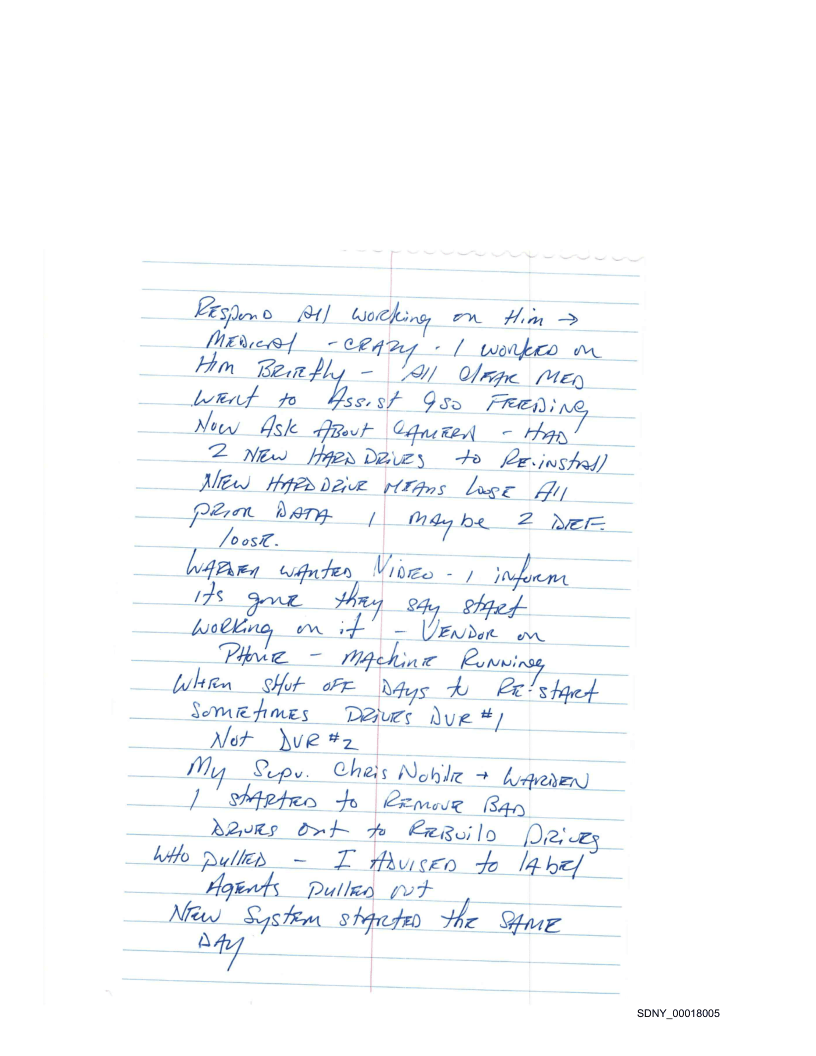 Respond All working on Him →
Medical - CRAZY. I worked on
Him Briefly - All clear MED
went to Assist 9so Feeding
Now Ask About Camera - HAD
2 New Hard Drives to Re-install
New Hard Drive Means Lose All
prior DATA 1 maybe 2 DEF.
loose.
Warden wanted Video - I inform
its gone they say start
working on it - Vendor on
Phone - Machine Running
When shut off Days to Re-start
Sometimes Drives DVR #1
Not DVR #2
My Supv. Chris Nobile + Warden
I started to Remove Bad
Drives out to Rebuild Drives
Who pulled - I Advised to label
Agents pulled out
New System started the SAME
DAY
SDNY_00018005